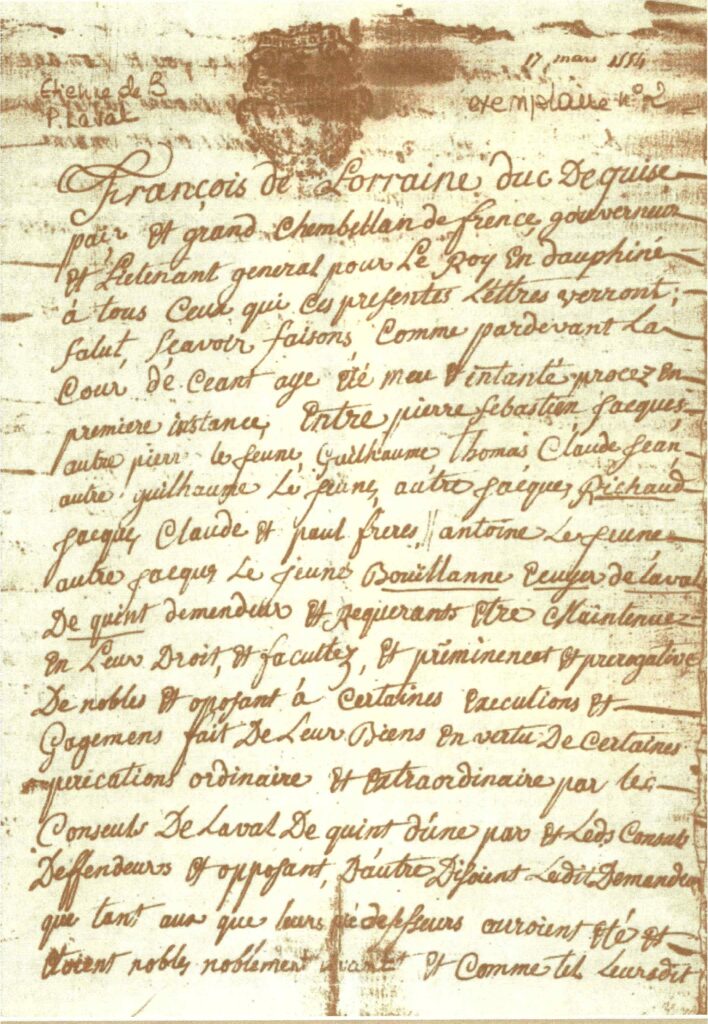 17 mars 1554
Etienne de B
P. Laval
exemplaire n° 2
François de Lorraine duc De guise
pair et grand Chembellan de frence, gouverneur
et Lietenant general pour Le Roy En dauphiné
à tous Ceux qui Ces presentes Lettres verront;
salut, sçavoir faisons Comme pardevant La
Cour de Ceant aye été meu & intanté procez en
premiere instance, Entre pierre Sebastien Jacques
autre pierr le jeune, Guilhaume Thomas Claude Jean
autre guilhaume Le jeune, autre jacques Richaud
jacques Claude et paul freres, antoine Le jeune
autre jacques Le jeune Bouillanne Ecuyer de laval
De quint demendeur et Requerants être Maintenuez
En Leur Droit, et facultez, et préminences et prerogative
De nobles et oposant à Certaines Executions et
Gagemens fait De Leur Biens En vertu De Certaines
ordinaire et Extraordinaire par les
Conseuls De Laval De quint d'une par et Leds Consuls
Deffendeurs et opposant, D'autre Disoient Ledit Demendeur
que tant aux que leurs ouroient été et
étoient nobles noblement et Comme tel Leursdit